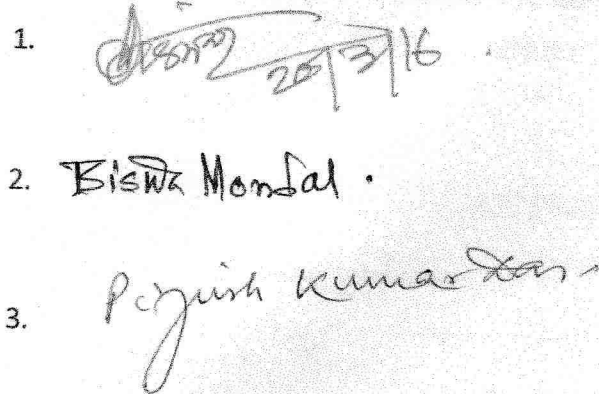 1. 26/3/16
2. Biswa Mondal.
3. Piyush Kumar Das.